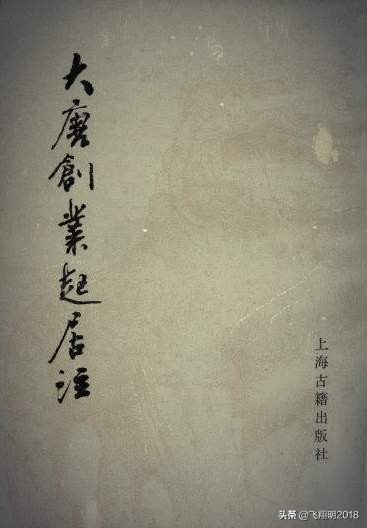 大唐創業起居注
上海古籍出版社
头条 @飞翔明2018